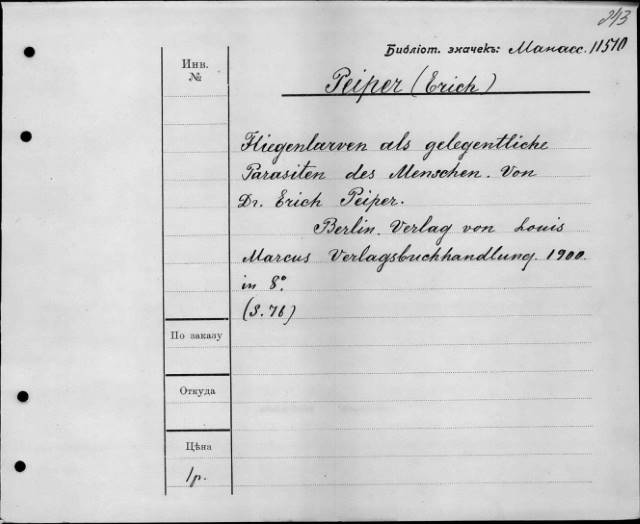 243
Библіот. значекъ: Манасс. 11510
Инв.
№
Peiper (Erich)
Fliegenlarven als gelegentliche
Parasiten des Menschen. Von
Dr. Erich Peiper.
Berlin. Verlag von Louis
Marcus Verlagsbuchhandlung. 1900.
in 8°
(S. 76)
По заказу
Откуда
Цѣна
1р.